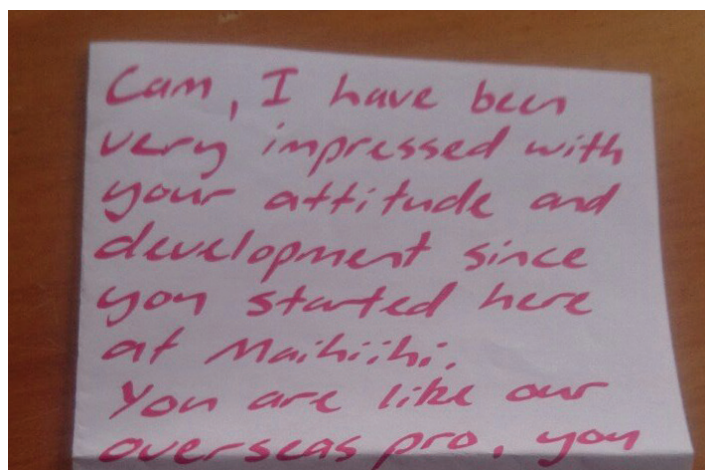 Cam, I have been
very impressed with
your attitude and
development since
you started here
at Maihiihi.
You are like our
overseas pro, you